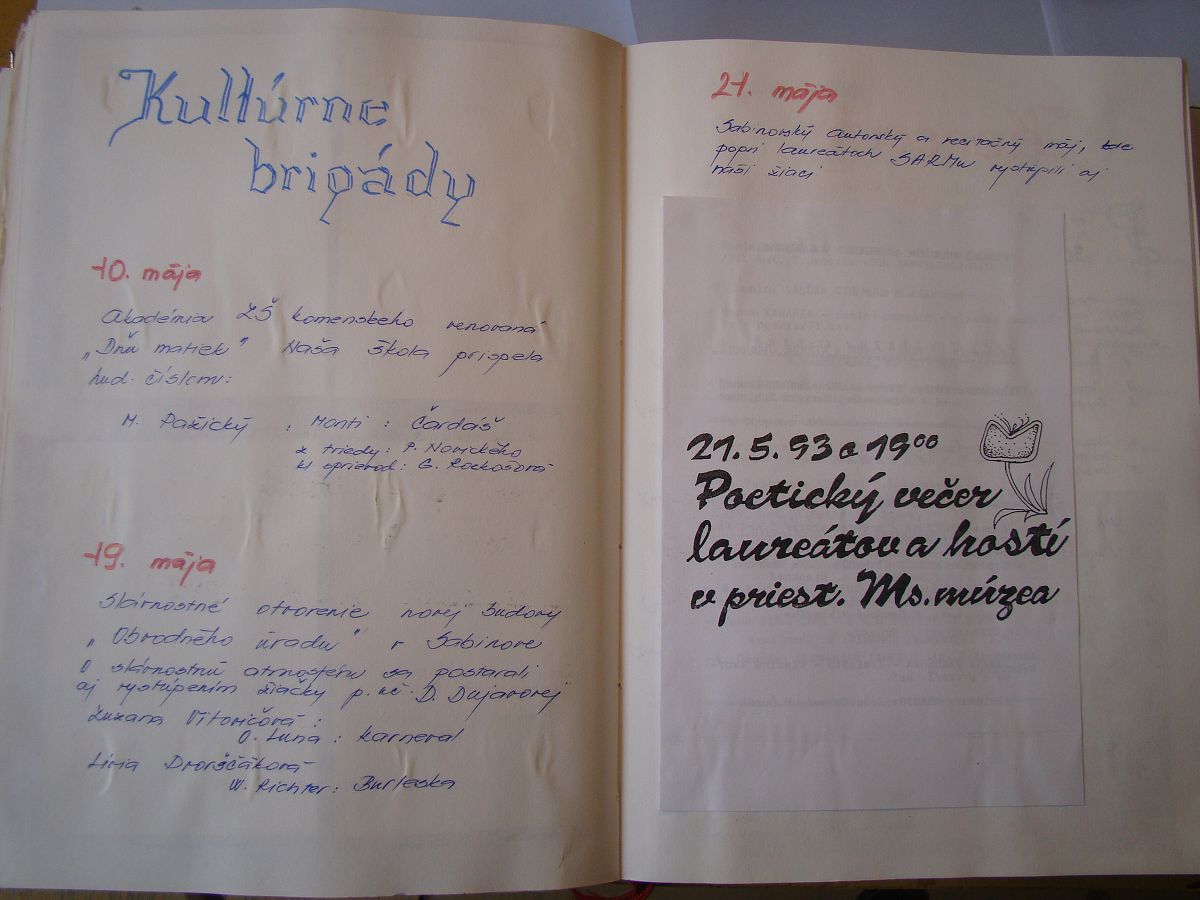 Kultúrne
brigády
10. mája
Akadémia ZŠ Komenského venovaná
„Dňu matiek" Naša škola prispela
hud. číslom:
M. Pažický : Monti : Čardáš
z triedy: P. Novického
kl. sprievod: G. Rockošová
19. mája
Slávnostné otvorenie novej budovy
„Obvodného úradu" v Sabinove
O slávnostnú atmosféru sa postarali
aj vystúpením žiačky p. uč. D. Dujavovej
Zuzana Vitovičová :
O. Luna : Karneval
Lívia Dvorščáková
W. Richter: Burleska
21. mája
Sabinovský autorský a recitačný máj, kde
popri laureátoch SARMu vystúpili aj
naši žiaci
21. 5. 93 o 19⁰⁰
Poetický večer
laureátov a hostí
v priest. Ms. múzea